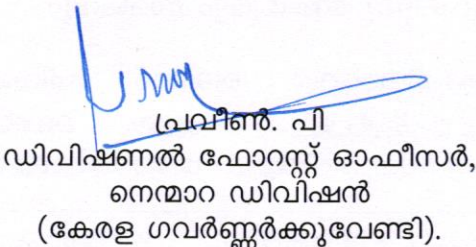 പ്രവീൺ. പി
ഡിവിഷണൽ ഫോറസ്റ്റ് ഓഫീസർ,
നെന്മാറ ഡിവിഷൻ
(കേരള ഗവർണ്ണർക്കുവേണ്ടി).